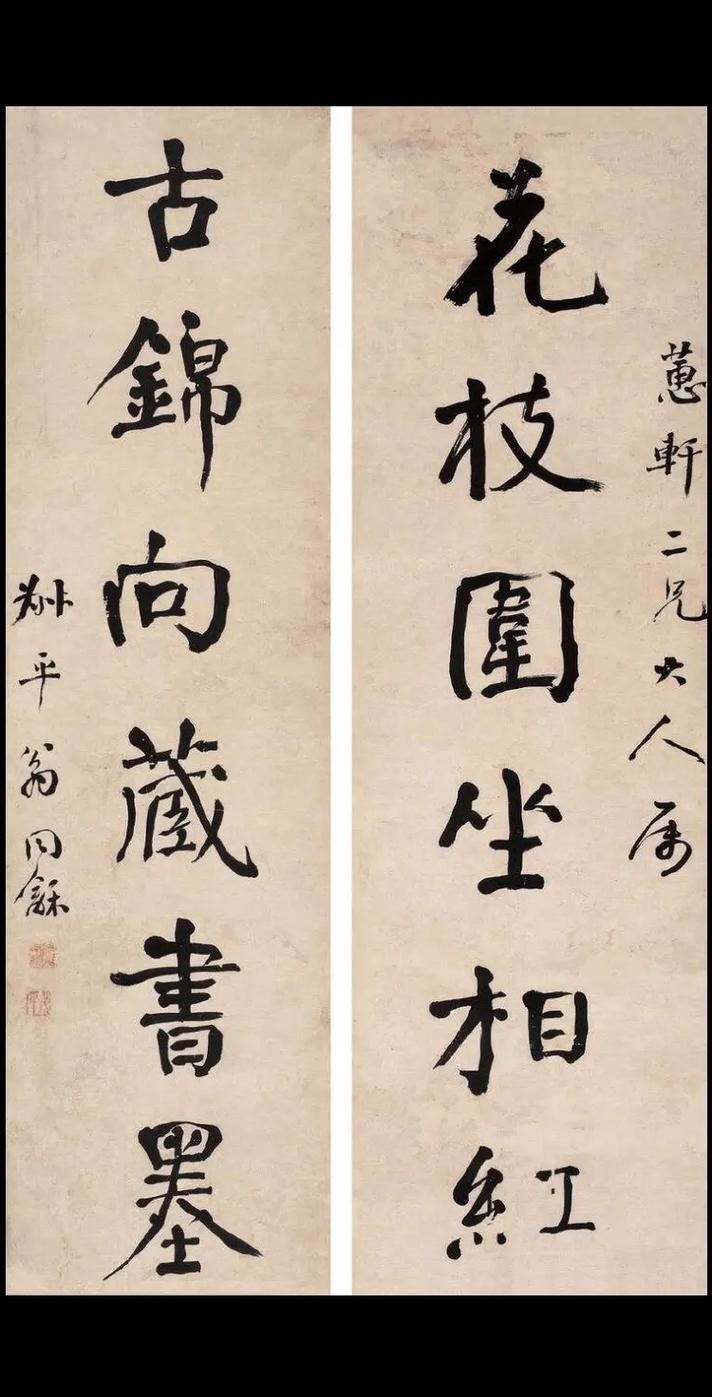 蕙軒二兄大人属
花枝圍坐相紅
古錦向藏書墨
叔平翁同龢